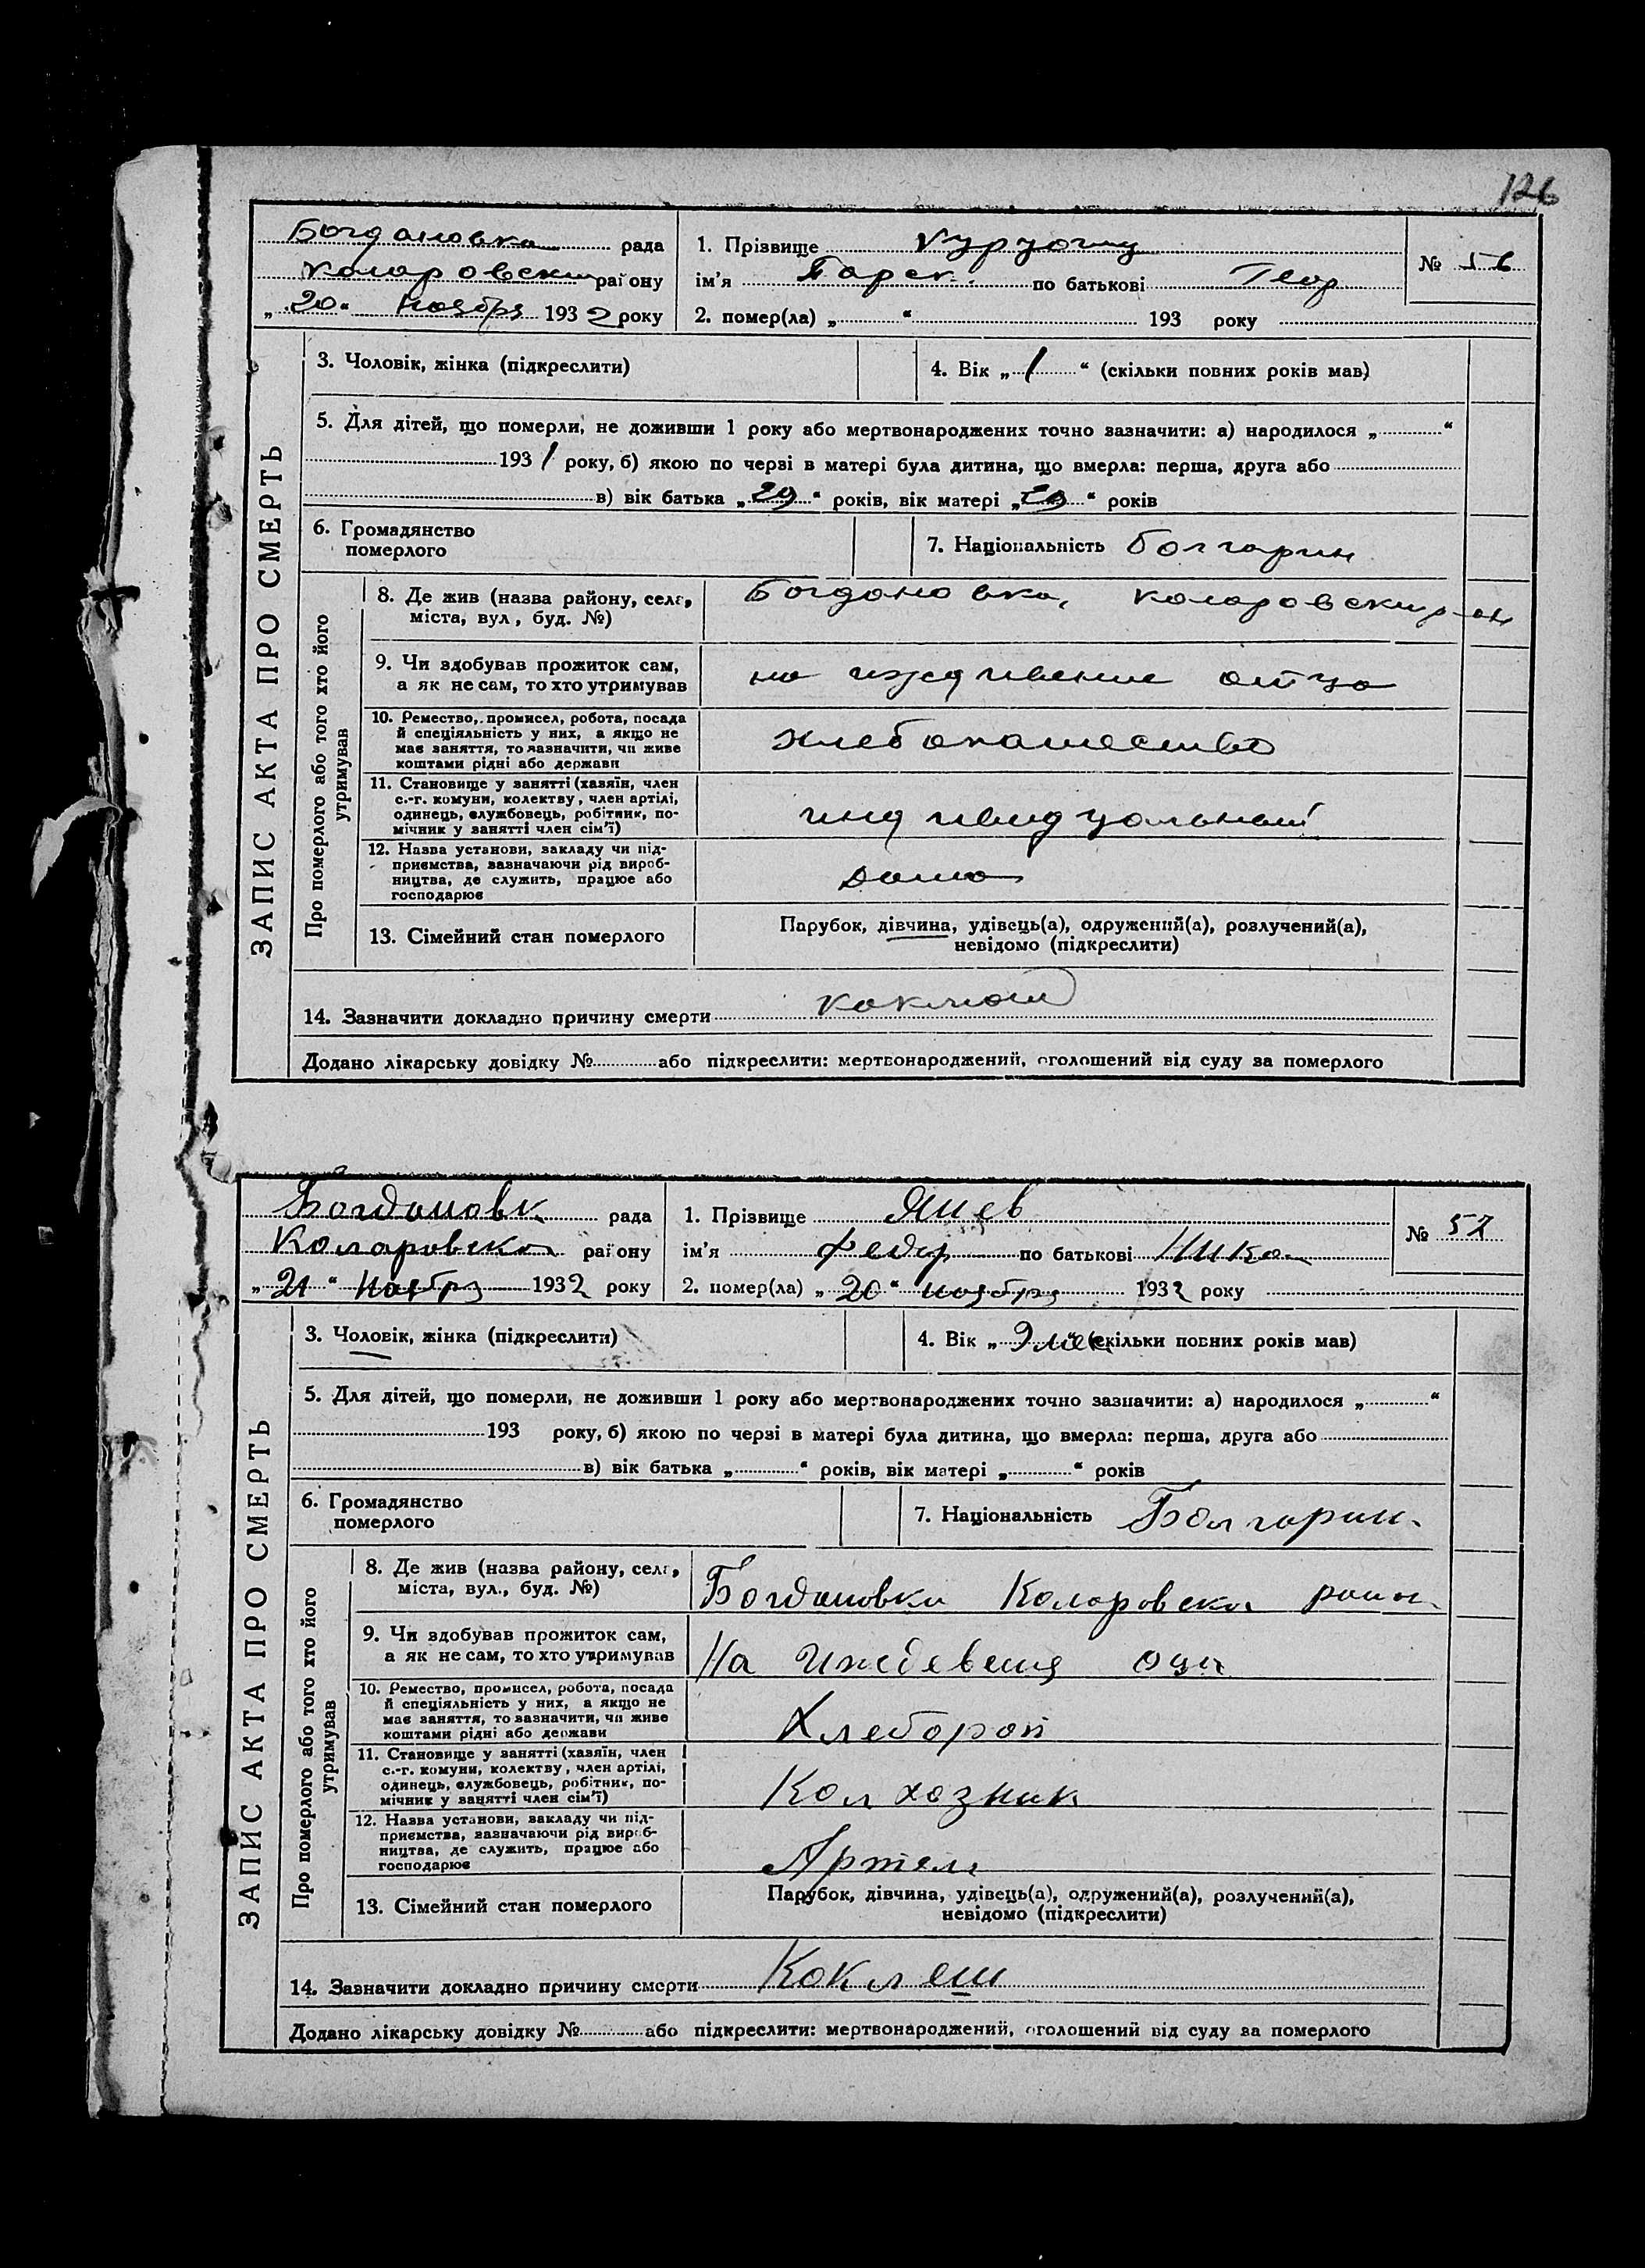 126
Богдановка рада
Коларовски району
„ 20 “ Ноября 1932 року
1. Прізвище
ім'я по батькові Геор
2. помер(ла) „ “ 193 року
№ 56
ЗАПИС АКТА ПРО СМЕРТЬ
3. Чоловік, жінка (підкреслити)
4. Вік „ 1 “ (скільки повних років мав)
5. Для дітей, що померли, не доживши 1 року або мертвонароджених точно зазначити: а) народилося „ “
1931 року, б) якою по черзі в матері була дитина, що вмерла: перша, друга або
в) вік батька „ 29 “ років, вік матері „ “ років
6. Громадянство
померлого
7. Національність болгарин
Про померлого або того хто його
утримував
8. Де жив (назва району, села,
міста, вул, буд. №)
Богдановка, Коларовски р-он
9. Чи здобував прожиток сам,
а як не сам, то хто утримував
на иждивение отца
10. Ремество, промисел, робота, посада
й спеціяльність у них, а якщо не
має заняття, то зазначити, чи живе
коштами рідні або держави
хлебопашество
11. Становище у занятті (хазяїн, член
с.-г. комуни, колективу, член артілі,
одинець, службовець, робітник, по-
мічник у занятті член сім'ї)
индивидуальный
12. Назва установи, закладу чи під-
приємства, зазначаючи рід вироб-
ництва, де служить, працює або
господарює
дома
13. Сімейний стан померлого
Парубок, дівчина, удівець(а), одружений(а), розлучений(а),
невідомо (підкреслити)
14. Зазначити докладно причину смерти коклюш
Додано лікарську довідку № або підкреслити: мертвонароджений, оголошений від суду за померлого
Богдановк рада
Коларовска району
„ 21 “ Ноябрз 1932 року
1. Прізвище Янев
ім'я Федор по батькові Нико
2. помер(ла) „ 20 “ ноябрз 1932 року
№ 57
ЗАПИС АКТА ПРО СМЕРТЬ
3. Чоловік, жінка (підкреслити)
4. Вік „ 9 мес (скільки повних років мав)
5. Для дітей, що померли, не доживши 1 року або мертвонароджених точно зазначити: а) народилося „ “
193 року, б) якою по черзі в матері була дитина, що вмерла: перша, друга або
в) вік батька „ “ років, вік матері „ “ років
6. Громадянство
померлого
7. Національність Болгарин.
Про померлого або того хто його
утримував
8. Де жив (назва району, села,
міста, вул., буд. №)
Богдановка Коларовска район
9. Чи здобував прожиток сам,
а як не сам, то хто утримував
На иждевения оца
10. Ремество, промисел, робота, посада
й спеціяльність у них, а якщо не
має заняття, то зазначити, чи живе
коштами рідні або держави
Хлебороп
11. Становище у занятті (хазяїн, член
с.-г. комуни, колективу, член артілі,
одинець, службовець, робітник, по-
мічник у занятті член сім'ї)
Колхозник
12. Назва установи, закладу чи під-
приємства, зазначаючи рід вироб-
ництва, де служить, працює або
господарює
Артели
13. Сімейний стан померлого
Парубок, дівчина, удівець(а), одружений(а), розлучений(а),
невідомо (підкреслити)
14. Зазначити докладно причину смерти Коклеш
Додано лікарську довідку № або підкреслити: мертвонароджений, оголошений від суду за померлого